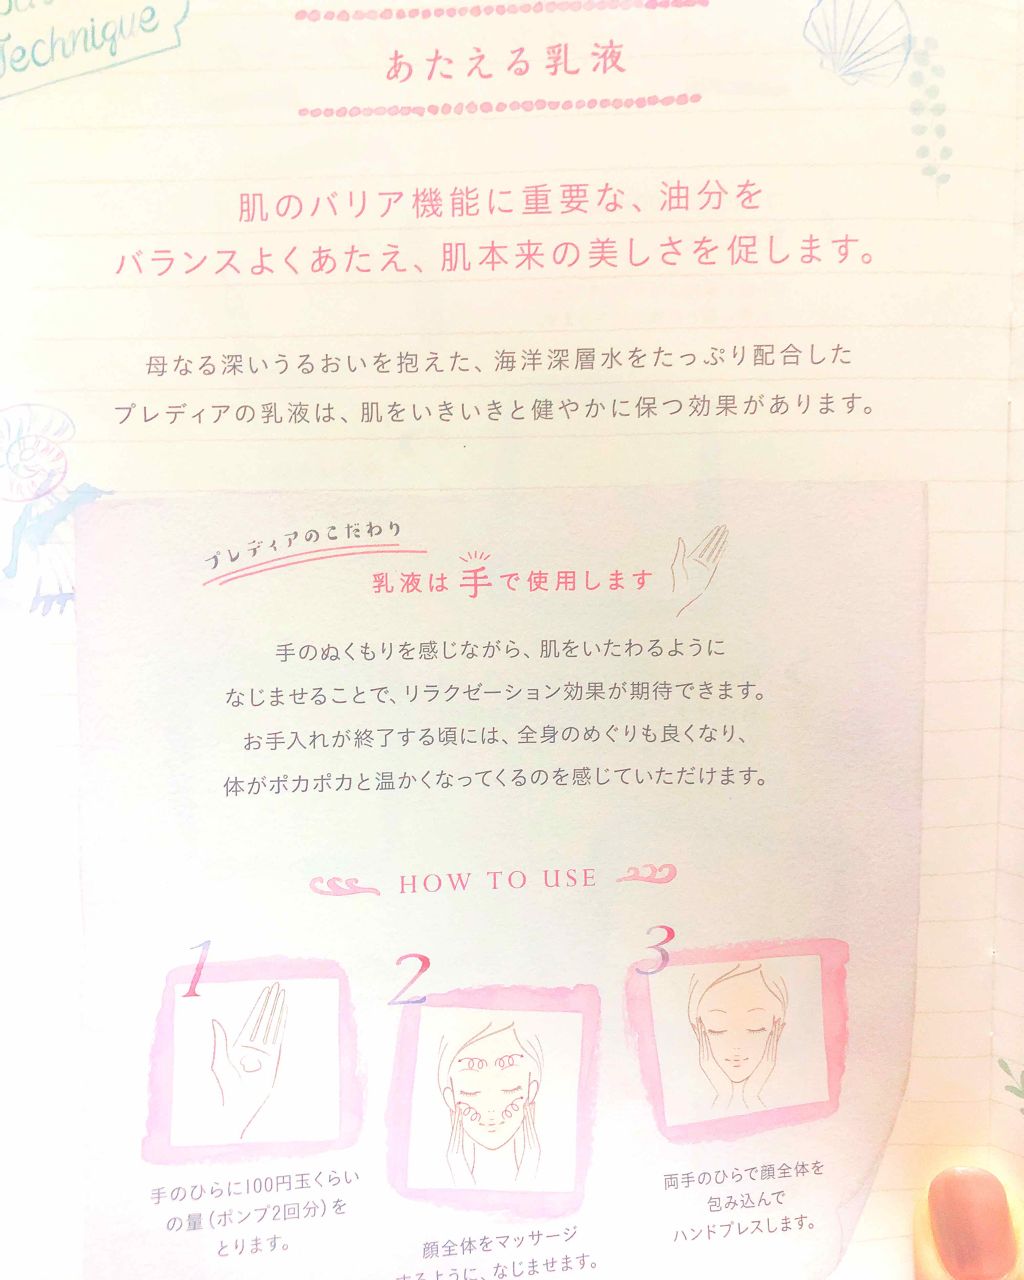 Technique
あたえる乳液
肌のバリア機能に重要な、油分を
バランスよくあたえ、肌本来の美しさを促します。
母なる深いうるおいを抱えた、海洋深層水をたっぷり配合した
プレディアの乳液は、肌をいきいきと健やかに保つ効果があります。
プレディアのこだわり
乳液は手で使用します
手のぬくもりを感じながら、肌をいたわるように
なじませることで、リラクゼーション効果が期待できます。
お手入れが終了する頃には、全身のめぐりも良くなり、
体がポカポカと温かくなってくるのを感じていただけます。
HOW TO USE
1
手のひらに100円玉くらい
の量(ポンプ2回分)を
とります。
2
顔全体をマッサージ
するように、なじませます。
3
両手のひらで顔全体を
包み込んで
ハンドプレスします。